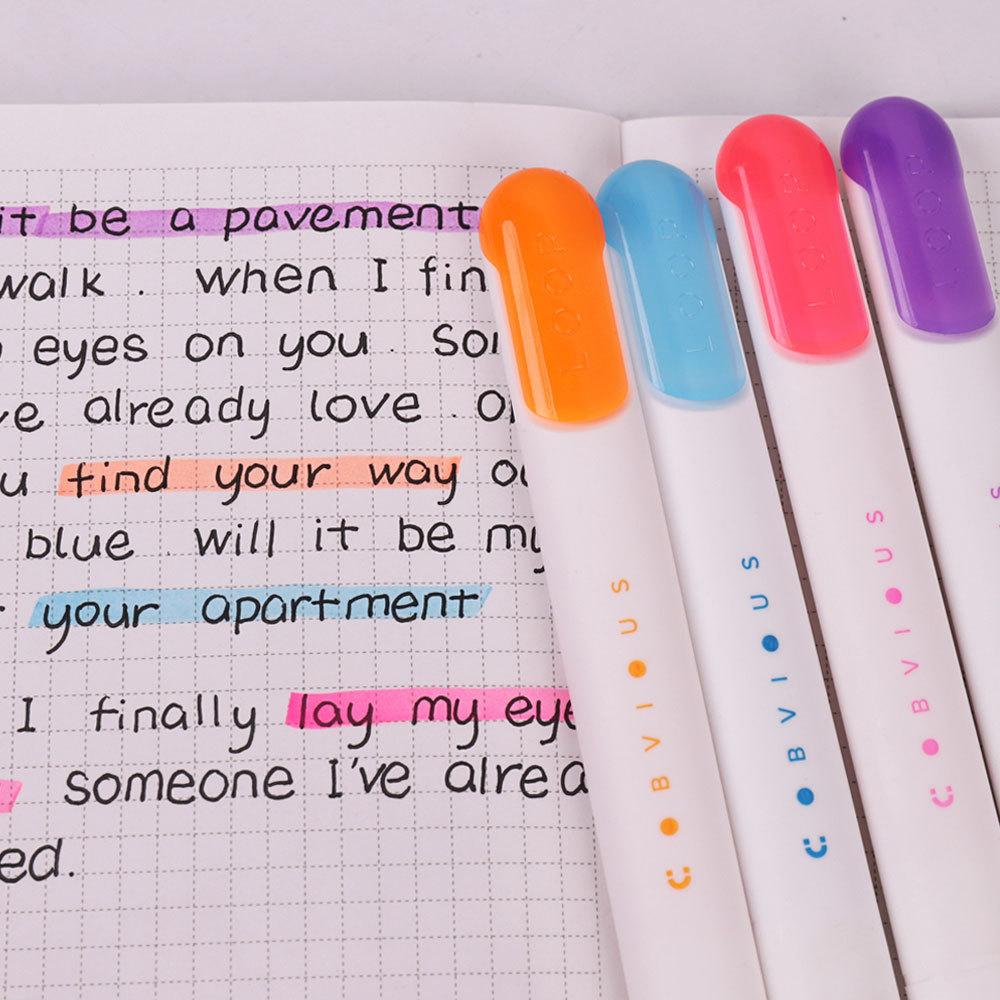 it be a pavement
walk. when I fin
eyes on you. Son
ve already love. o
u find your way ou
blue. will it be my
your apartment
I finally lay my eye
someone I've alrea
ed.
LOOP
LOOP
LOOP
LOOP
OBVIOUS
OBVIOUS
OBVIOUS
S